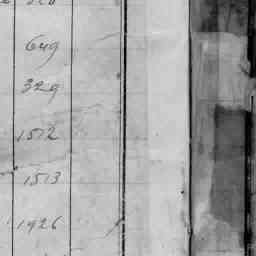 649
329
1512
1513
1926